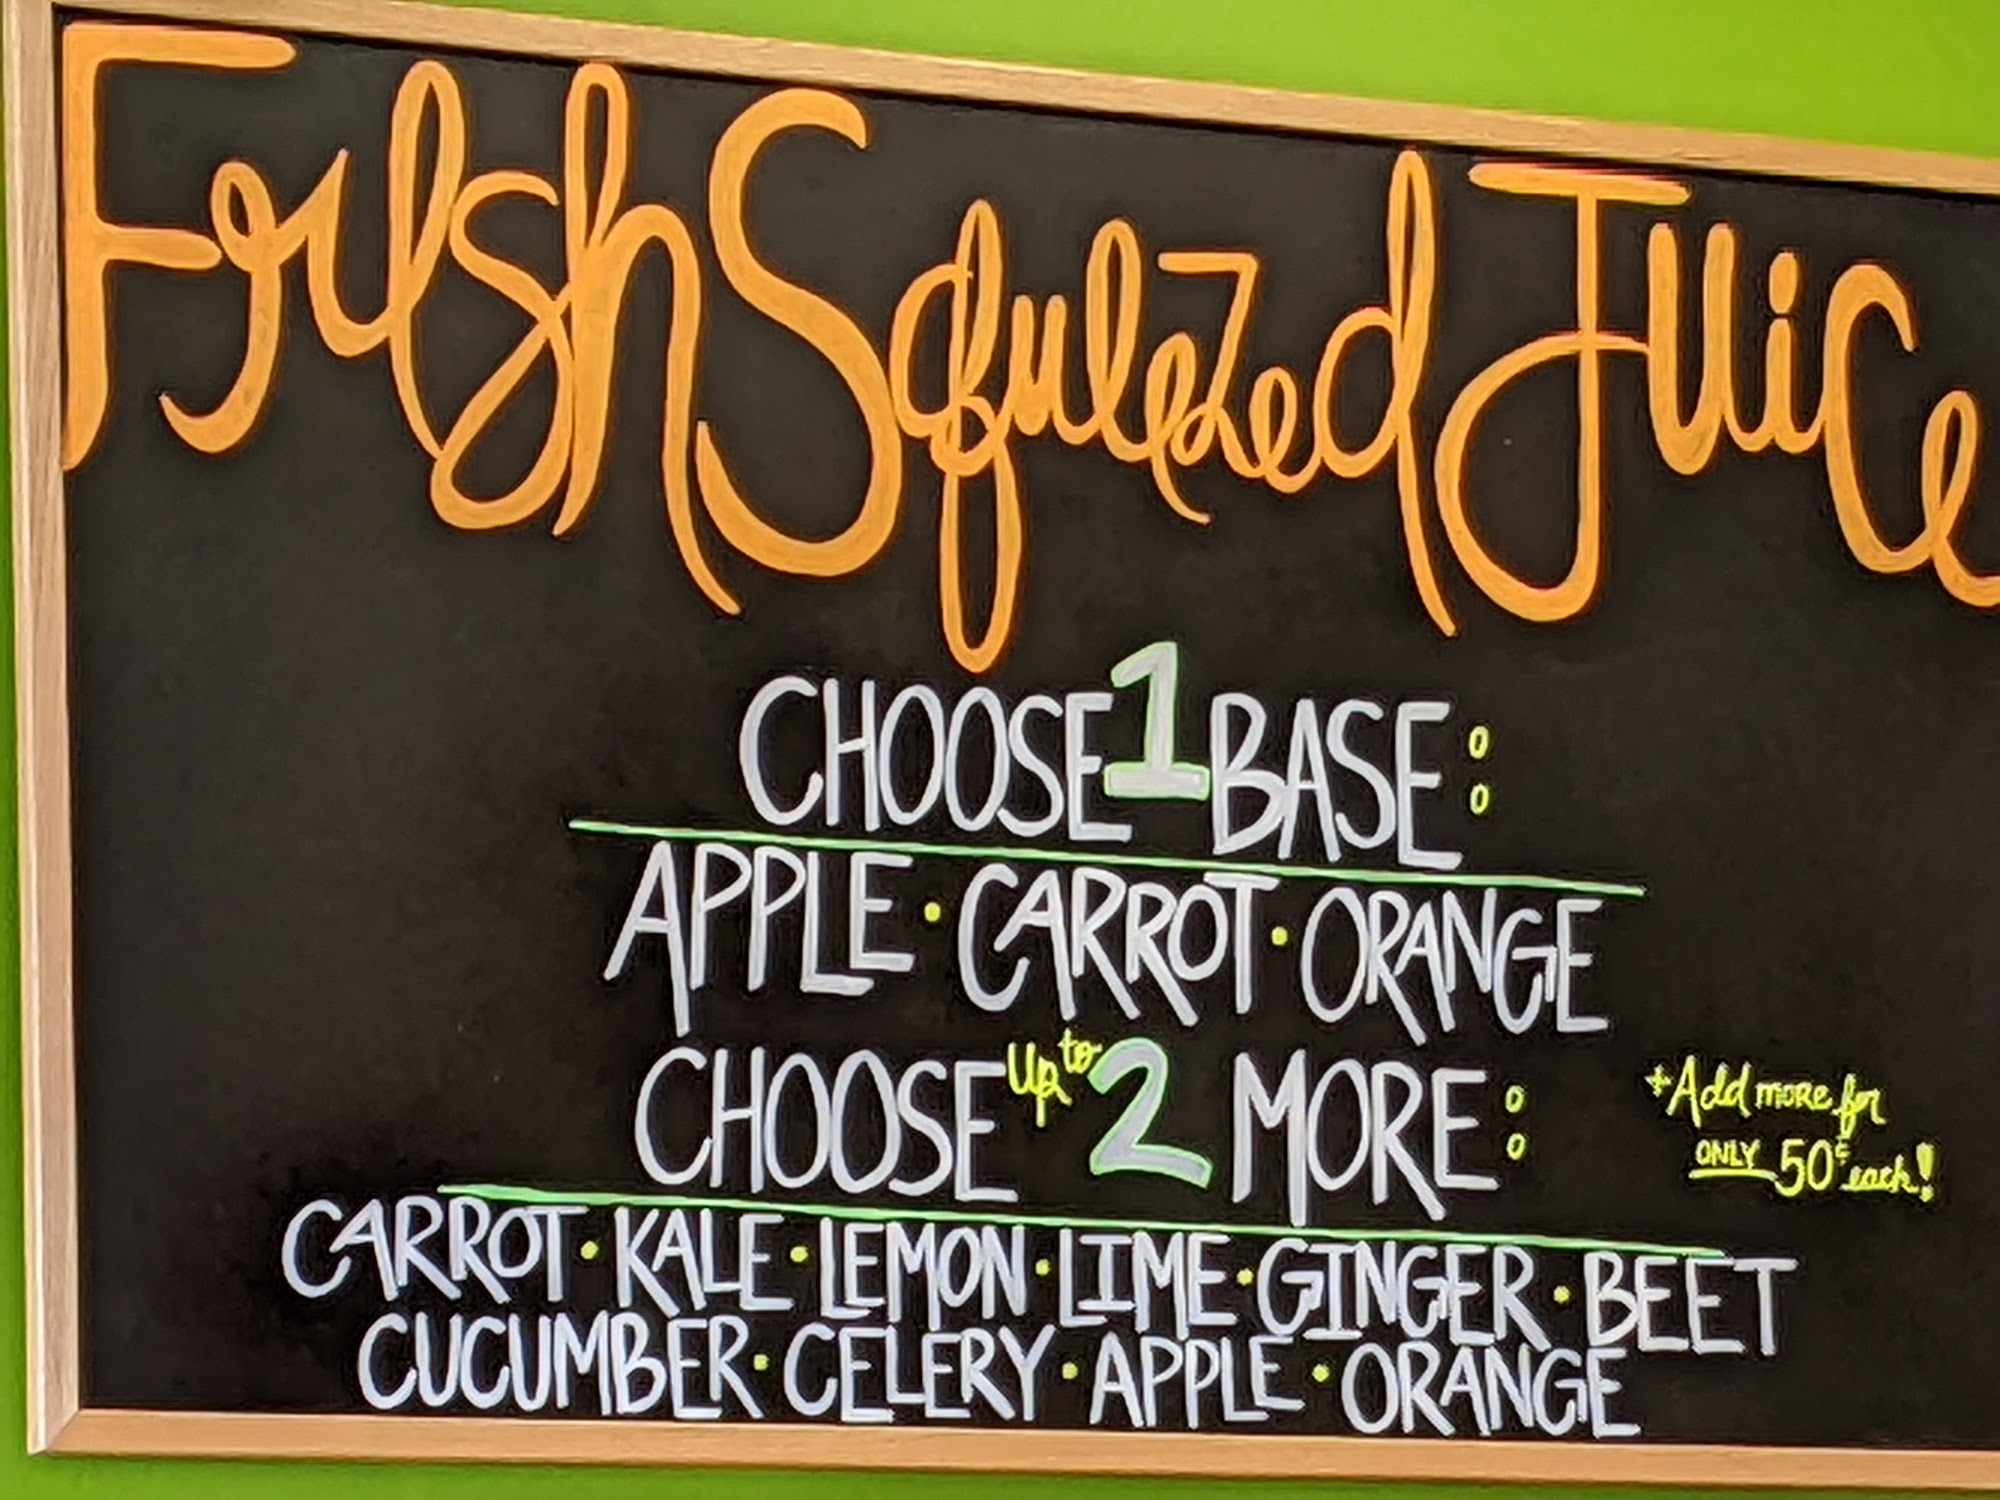 Fresh Squeezed Juice
CHOOSE 1 BASE:
APPLE · CARROT · ORANGE
CHOOSE up to 2 MORE:
+Add more for
ONLY 50¢ each!
CARROT · KALE · LEMON · LIME · GINGER · BEET
CUCUMBER · CELERY · APPLE · ORANGE